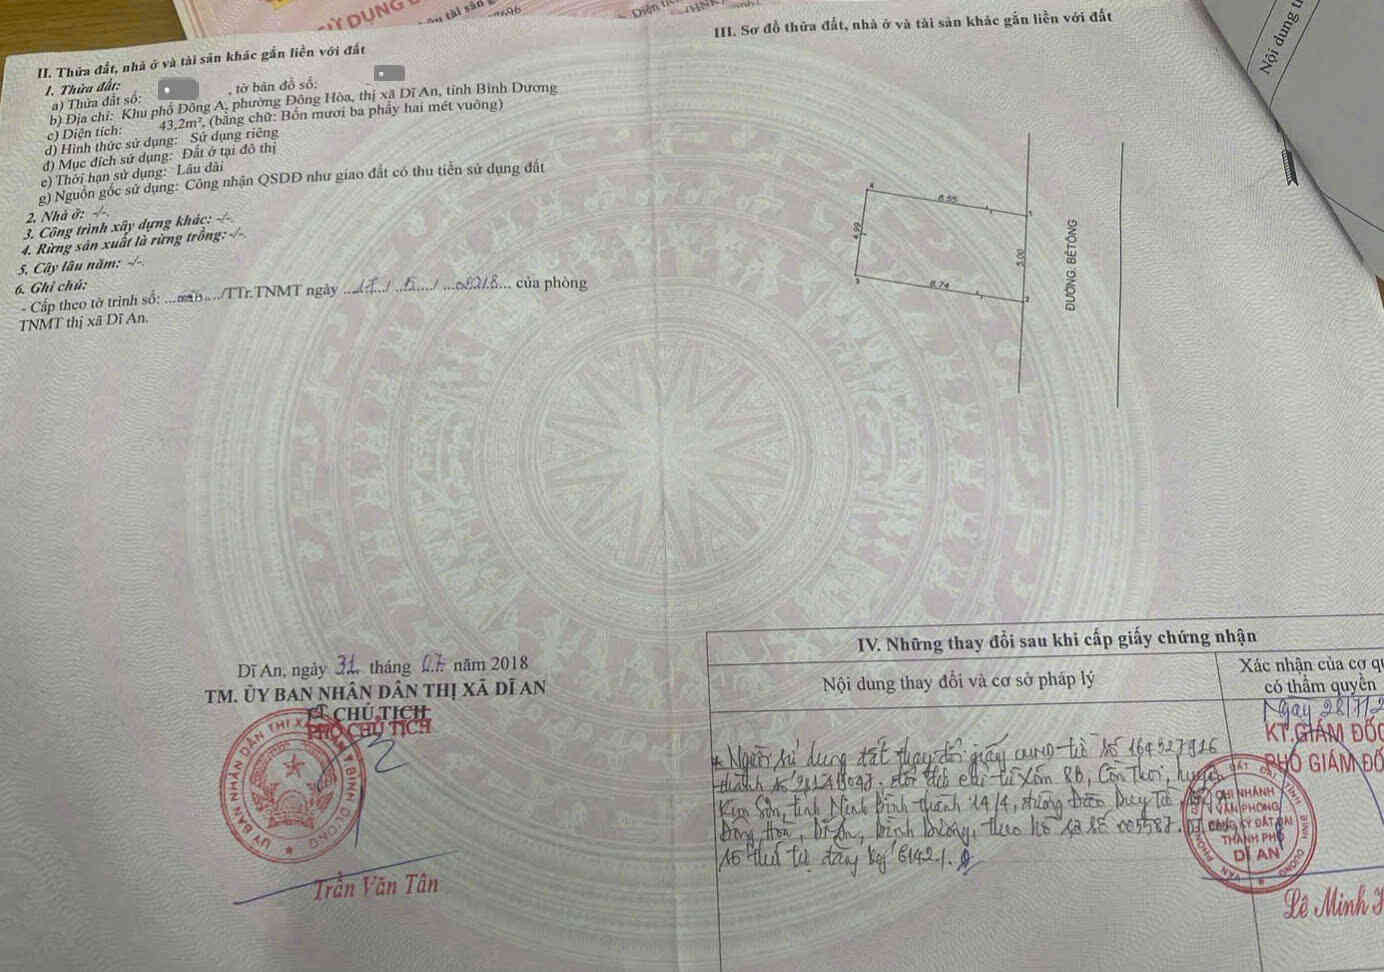 II. Thửa đất, nhà ở và tài sản khác gắn liền với đất
1. Thửa đất:
a) Thửa đất số: , tờ bản đồ số:
b) Địa chỉ: Khu phố Đông A, phường Đông Hòa, thị xã Dĩ An, tỉnh Bình Dương
c) Diện tích: 43,2m², (bằng chữ: Bốn mươi ba phẩy hai mét vuông)
d) Hình thức sử dụng: Sử dụng riêng
đ) Mục đích sử dụng: Đất ở tại đô thị
e) Thời hạn sử dụng: Lâu dài
g) Nguồn gốc sử dụng: Công nhận QSDĐ như giao đất có thu tiền sử dụng đất
2. Nhà ở: -/-.
3. Công trình xây dựng khác: -/-.
4. Rừng sản xuất là rừng trồng: -/-.
5. Cây lâu năm: -/-.
6. Ghi chú:
- Cấp theo tờ trình số: /TTr.TNMT ngày của phòng
TNMT thị xã Dĩ An.
Dĩ An, ngày 31 tháng 07 năm 2018
TM. ỦY BAN NHÂN DÂN THỊ XÃ DĨ AN
KT. CHỦ TỊCH
PHÓ CHỦ TỊCH
Trần Văn Tân
III. Sơ đồ thửa đất, nhà ở và tài sản khác gắn liền với đất
4
8.55
1
4.99
5.00
3
8.74
2
ĐƯỜNG BÊTÔNG
IV. Những thay đổi sau khi cấp giấy chứng nhận
Nội dung thay đổi và cơ sở pháp lý
Xác nhận của cơ
có thẩm quyền
Ngày 28/7/2
KT.GIÁM ĐỐC
PHÓ GIÁM ĐỐ
Người sử dụng đất thay đổi giấy CMND từ số 164527916
thành số đổi địa chỉ từ Xóm 8B, Cồn Thoi, huyện
Kim Sơn, tỉnh Ninh Bình thành 14/4, đường Trần Duy
Đông Hòa, Dĩ An, Bình Dương, theo hồ sơ số 005587.
Số thứ tự đăng ký 61421.
CHI NHÁNH
VĂN PHÒNG
ĐĂNG KÝ ĐẤT ĐAI
THÀNH PHỐ
DĨ AN
Lê Minh
Nội dung